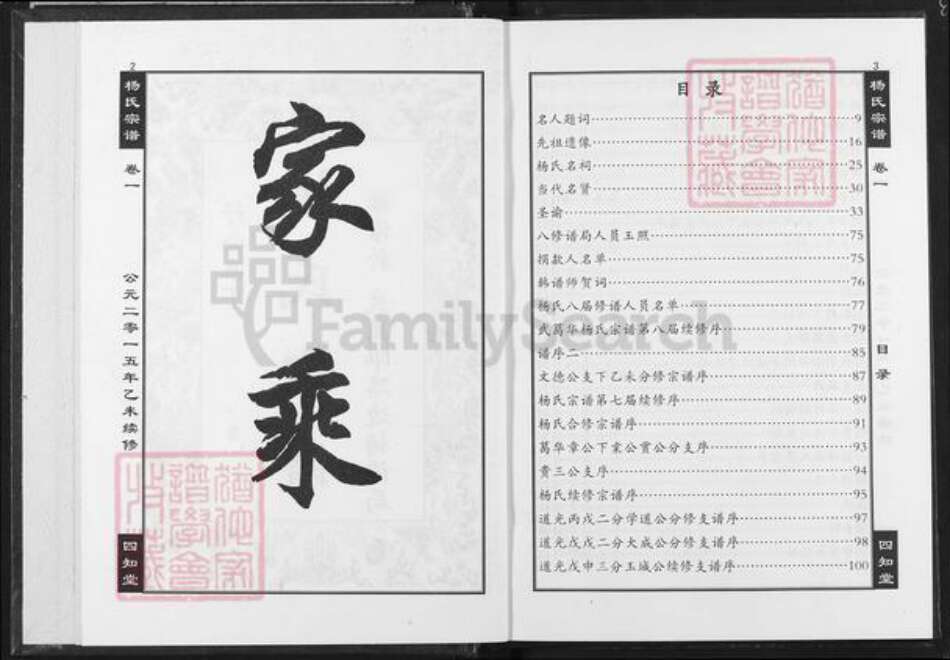 2
杨氏宗谱
卷一
公元二零一五年乙未续修
四知堂
家乘
FamilySearch
3
杨氏宗谱
卷一
目录
四知堂
目录
名人题词……9
先祖遗像……16
杨氏名祠……25
当代名贤……30
圣谕……33
八修谱局人员玉照……75
捐款人名单……75
韩谱师贺词……76
杨氏八届修谱人员名单……77
武葛华杨氏宗谱第八届续修序……79
谱序二……85
文德公支下乙未分修宗谱序……87
杨氏宗谱第七届续修序……89
杨氏合修宗谱序……91
葛华章公下棠公贾公分支序……93
贵三公支序……94
杨氏续修宗谱序……95
道光丙戌二分学道公分修支谱序……97
道光戊戌二分大成公分修支谱序……98
道光戊申三分玉城公续修支谱序……100